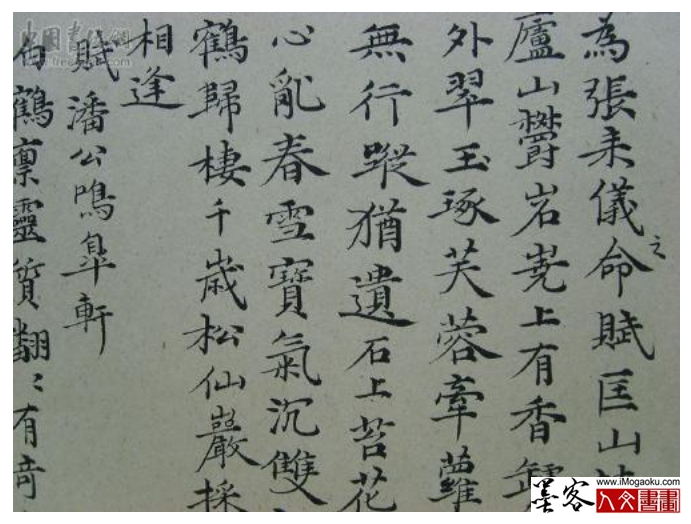 為張来儀命之賦匡山
廬山欝岩嶤上有香鑪
外翠玉琢芙蓉牽蘿
無行蹤猶遺石上苔花
心亂春雪寶氣沉雙
鶴歸棲千歲松仙巖採
相逢
賦潘公鳴臯軒
白鶴稟靈質翩〻有奇
墨客
www.iMogaoku.com
人文書畫